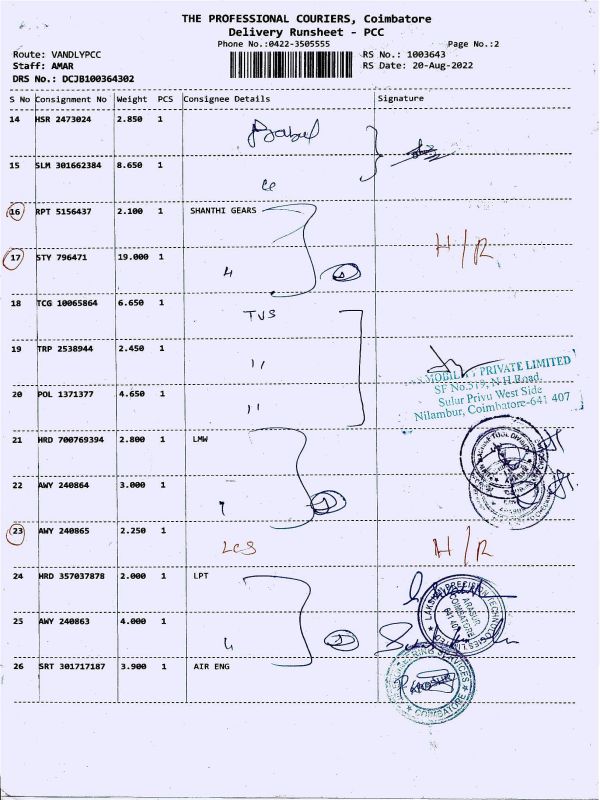 THE PROFESSIONAL COURIERS, Coimbatore
Delivery Runsheet - PCC
Phone No.:0422-3505555 Page No.:2
Route: VANDLYPCC RS No.: 1003643
Staff: AMAR RS Date: 20-Aug-2022
DRS No.: DCJB100364302
S No Consignment No Weight PCS Consignee Details Signature
14 HSR 2473024 2.850 1
15 SLM 301662384 8.650 1
16 RPT 5156437 2.100 1 SHANTHI GEARS
17 STY 796471 19.000 1 H/R
18 TCG 10065864 6.650 1 TVS
19 TRP 2538944 2.450 1 "
MOBILITY PRIVATE LIMITED
SF No.519, N.H.Road,
20 POL 1371377 4.650 1 "
Sulur Privu West Side
Nilambur, Coimbatore-641 407
21 HRD 700769394 2.800 1 LMW
22 AWY 240864 3.000 1
23 AWY 240865 2.250 1 LCS H/R
24 HRD 357037878 2.000 1 LPT
LAKSHMI PRECISION TECHNOLOGIES LIMITED
ARASUR
COIMBATORE
641 407
25 AWY 240863 4.000 1
26 SRT 301717187 3.900 1 AIR ENG
ENGINEERING SERVICES
COIMBATORE